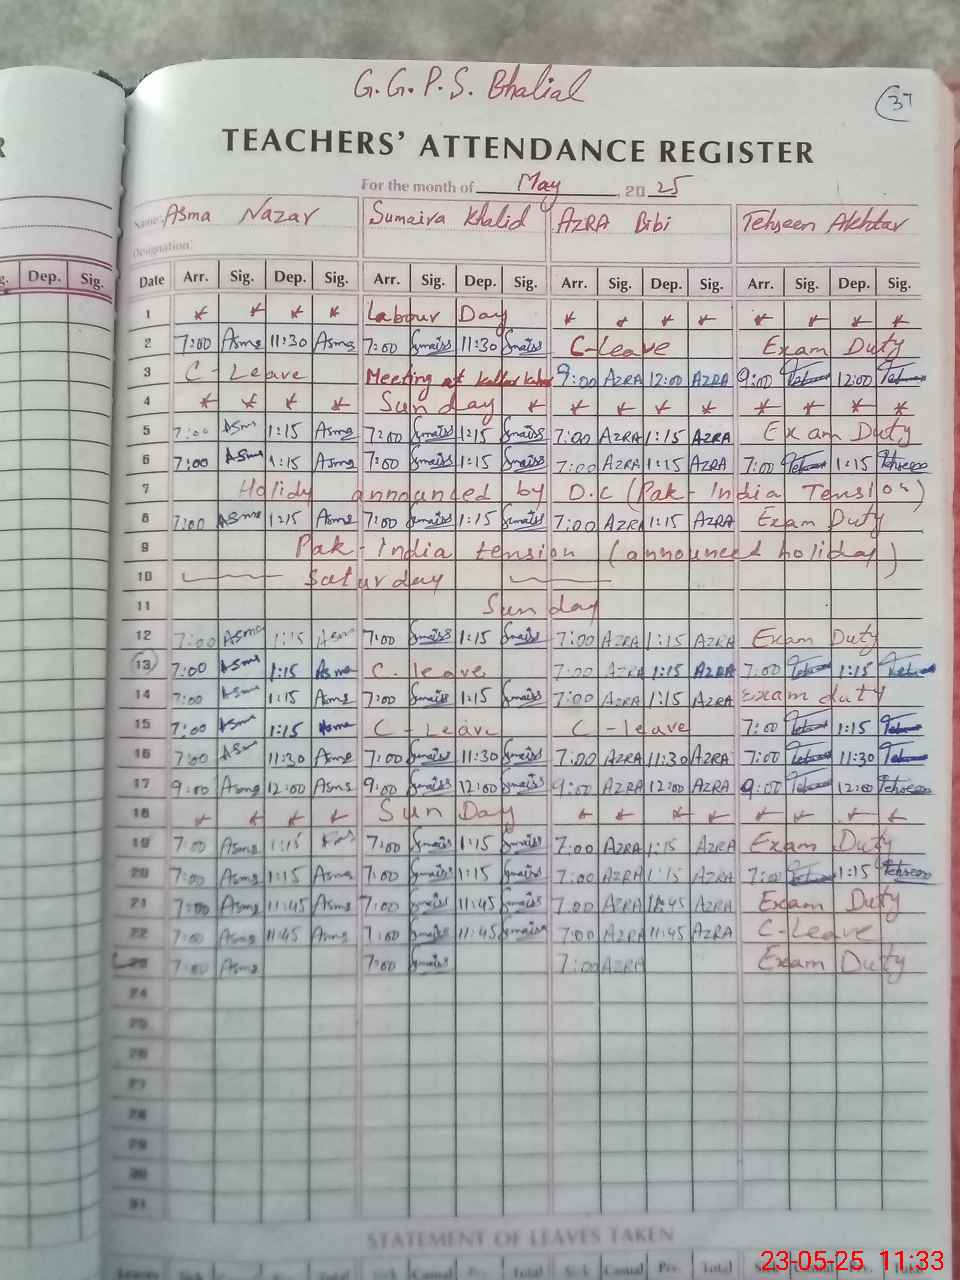 G.G.P.S. Bhalial
37
TEACHERS' ATTENDANCE REGISTER
For the month of May, 20 25
Name: Asma Nazar Sumaira Khalid AZRA Bibi Tehseen Akhtar
Designation:
Dep. Sig. Date Arr. Sig. Dep. Sig. Arr. Sig. Dep. Sig. Arr. Sig. Dep. Sig. Arr. Sig. Dep. Sig.
1 * * * * Labour Day * * * * * * * *
2 7:00 Asma 11:30 Asma 7:00 11:30 C-Leave Exam Duty
3 C-Leave Meeting at Kallar 9:00 AZRA 12:00 AZRA 9:00 12:00
4 * * * * Sunday * * * * * * * * *
5 7:00 Asma 1:15 Asma 7:00 1:15 7:00 AZRA 1:15 AZRA Exam Duty
6 7:00 Asma 1:15 Asma 7:00 1:15 7:00 AZRA 1:15 AZRA 7:00 1:15 Tehseen
7 Holidy announced by D.C (Pak-India Tension)
8 7:00 Asma 1:15 Asma 7:00 1:15 7:00 AZRA 1:15 AZRA Exam Duty
9 Pak-India tension (announced holiday)
10 Saturday
11 Sunday
12 7:00 Asma 1:15 Asma 7:00 1:15 7:00 AZRA 1:15 AZRA Exam Duty
13 7:00 Asma 1:15 Asma C. leave 7:00 AZRA 1:15 AZRA 7:00 1:15
14 7:00 Asma 1:15 Asma 7:00 1:15 7:00 AZRA 1:15 AZRA Exam duty
15 7:00 Asma 1:15 Asma C-Leave C-leave 7:00 1:15
16 7:00 Asma 11:30 Asma 7:00 11:30 7:00 AZRA 11:30 AZRA 7:00 11:30
17 9:00 Asma 12:00 Asma 9:00 12:00 9:00 AZRA 12:00 AZRA 9:00 12:00 Tehseen
18 * * * * Sun Day * * * * * * * *
19 7:00 Asma 1:15 7:00 1:15 7:00 AZRA 1:15 AZRA Exam Duty
20 7:00 Asma 1:15 Asma 7:00 1:15 7:00 AZRA 1:15 AZRA 7:00 1:15 Tehseen
21 7:00 Asma 11:45 Asma 7:00 11:45 7:00 AZRA 11:45 AZRA Exam Duty
22 7:00 Asma 11:45 Asma 7:00 11:45 7:00 AZRA 11:45 AZRA C-Leave
23 7:00 Asma 7:00 7:00 AZRA Exam Duty
24
25
26
27
28
29
30
31
STATEMENT OF LEAVES TAKEN
Sick Casual Total Sick Casual Prv. Total
23-05-25 11:33